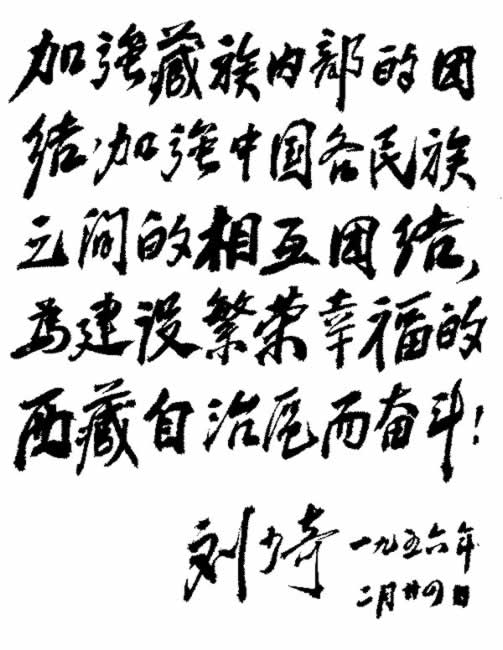 加強藏族内部的团
结,加強中国各民族
之间的相互团结,
为建设繁荣幸福的
西藏自治区而奋斗!
刘少奇 一九五六年
二月廿四日